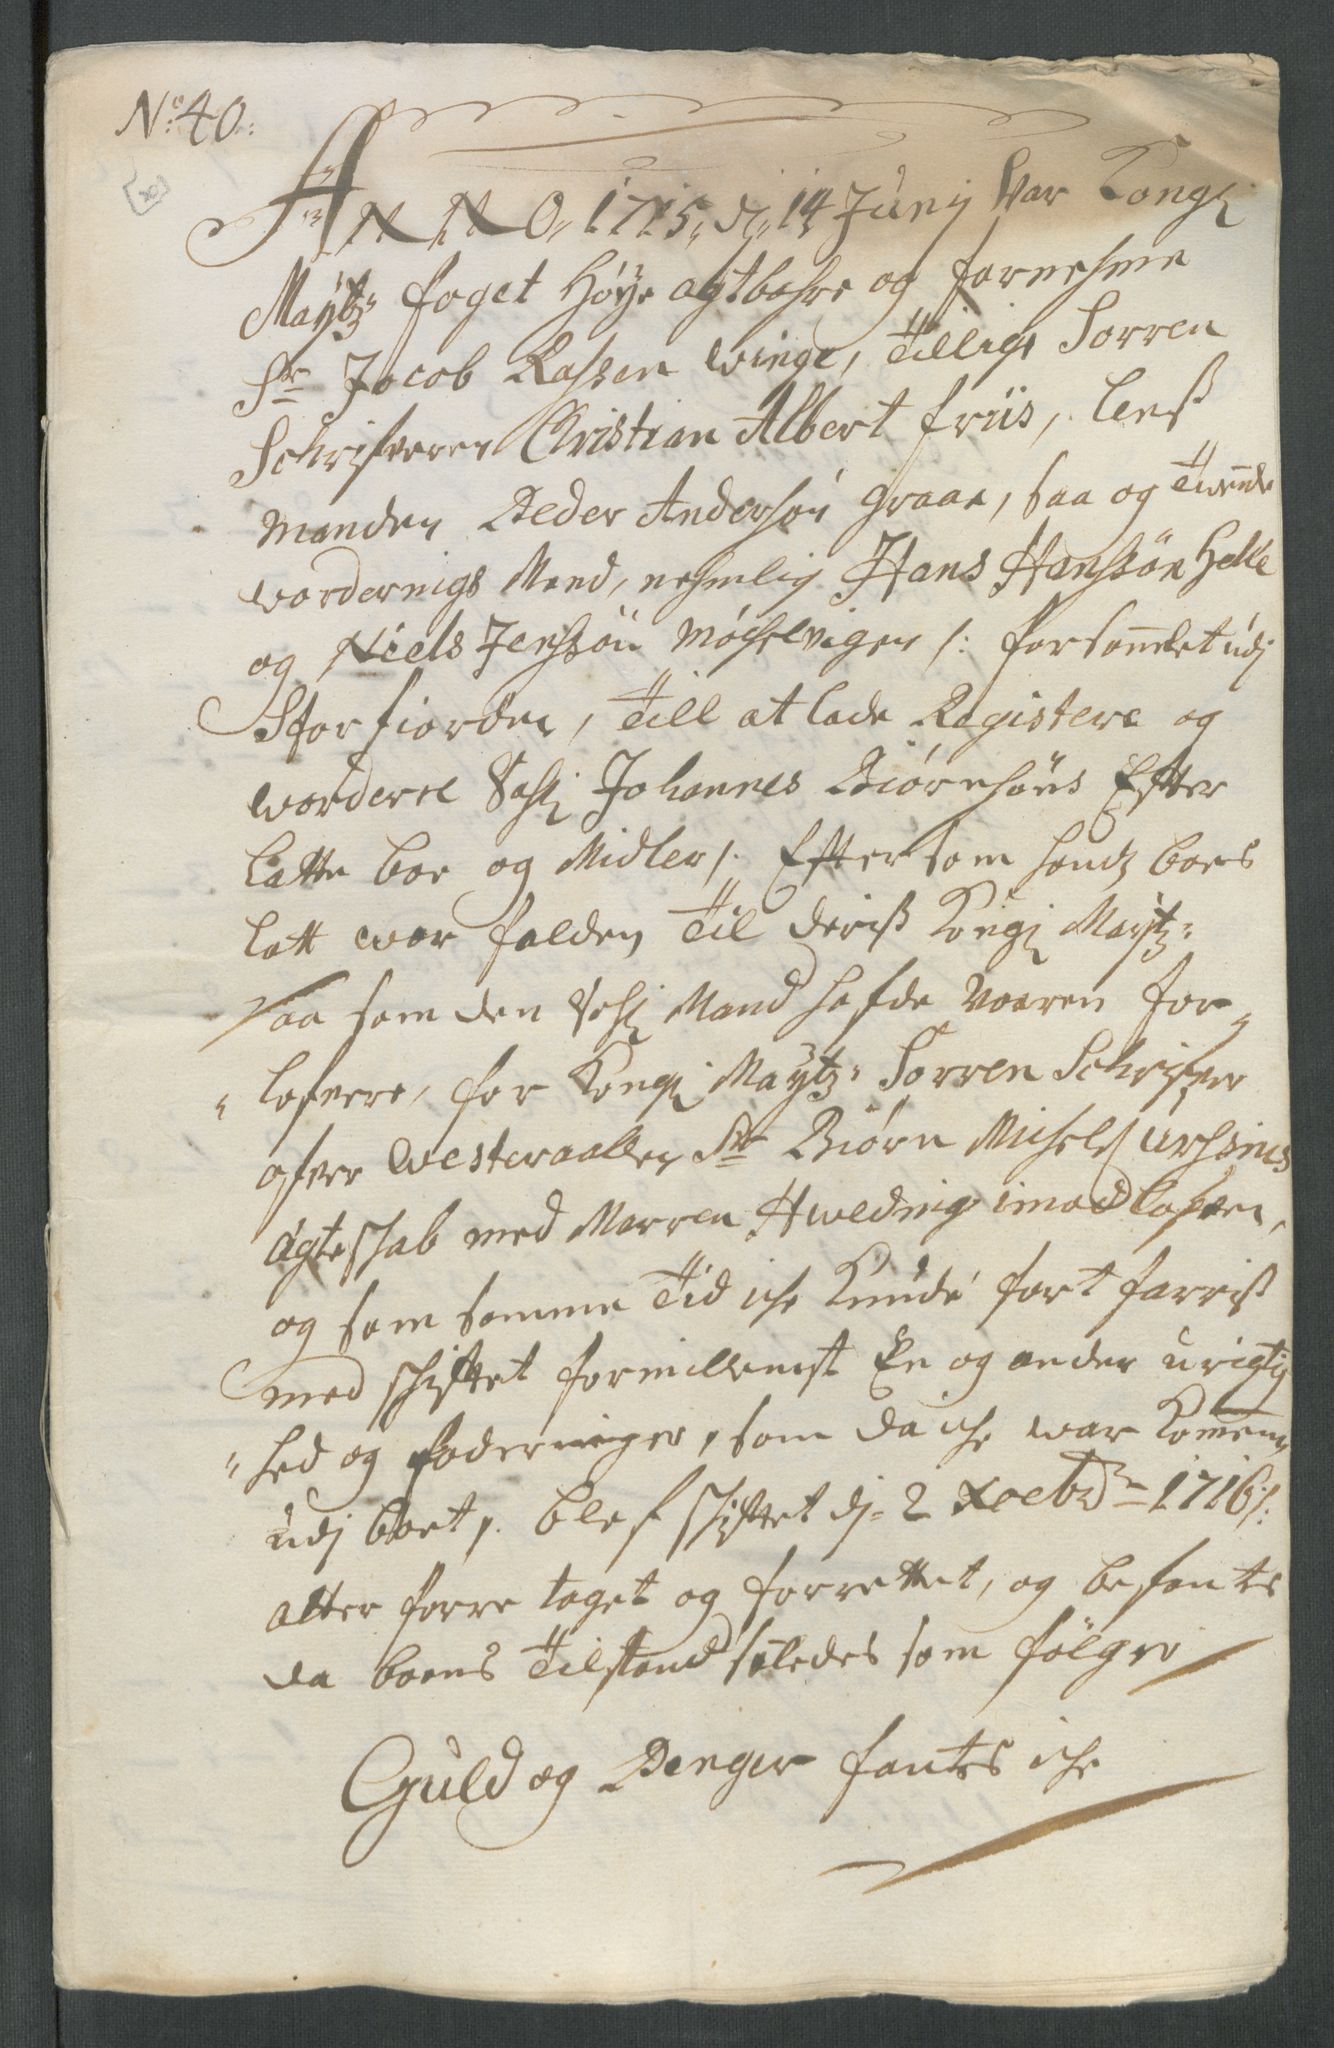 No 40.
ANNO 1715, d, 14 Junij Var Kongl
Maÿtz foget Höÿe agtbahre og fornehme
Sr Jacob Rassen Winge, Tillige Sorren
Schrifveren Christian Albert friis, lenß
manden Peder Andersön graae, saa og Twende
wordernigs Mend, nehmlig Hans Hanssön Helle
og Niels Jenssön Möchelvigen /: forsamlet udj
Storfiorden, Till at lade Registere og
worderre Sahl Johannes Biörnsöns Efter
latte boe og Midler /. Eftersom hands boes
latt war falden Til deriß Kongl Maÿtz:
saa som den Sahl Mand hafde vaaren for-
lofvere, for Kongl Maÿtz: Sorren Schrifver
ofver Westeraallen Sr Biörn Michels Urssinus
ægteschab med Marren Hvelding imod loven,
og som samme Tid iche Kunde fort farris
med schiftet formillemst En og anden urigtig
hed og foderninger, som da iche war Komen
udj boet, blef schiftet dj 2 Xocbr 1716 /:
atter forre taget og forrettet, og befantes
da boens Tilstand saledes som fölger
Guld og Penger fantes iche